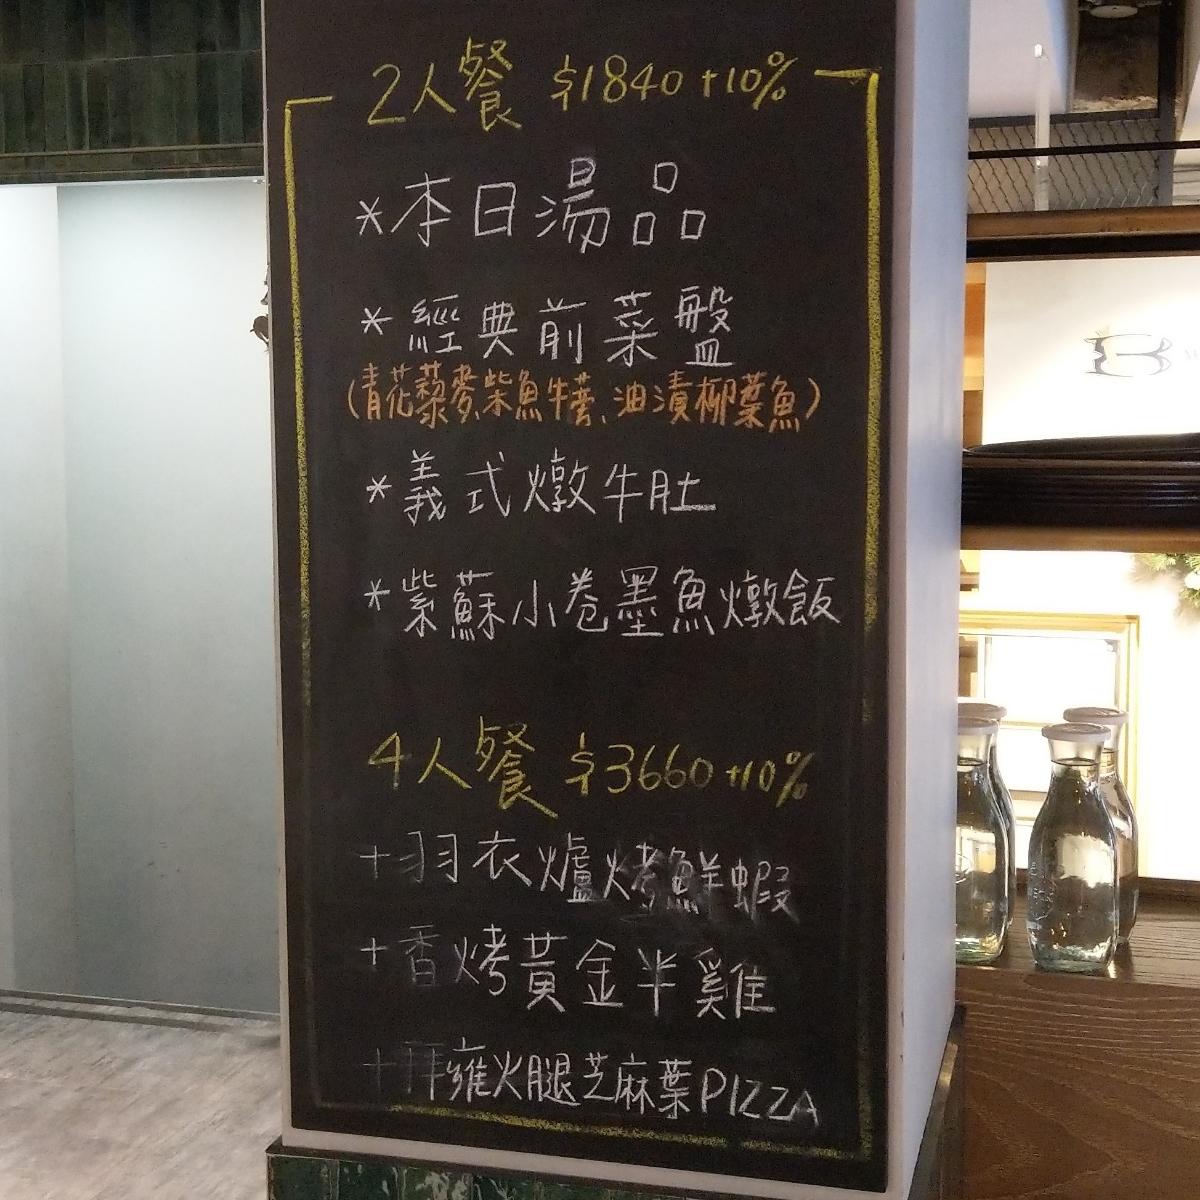 2人餐 $1840 +10%
*本日湯品
*經典前菜盤
(青花藜麥、柴魚牛蒡、油漬柳葉魚)
*義式燉牛肚
*紫蘇小卷墨魚燉飯
4人餐 $3660 +10%
+羽衣爐烤鮮蝦
+香烤黃金半雞
+拜雍火腿芝麻葉PIZZA
B